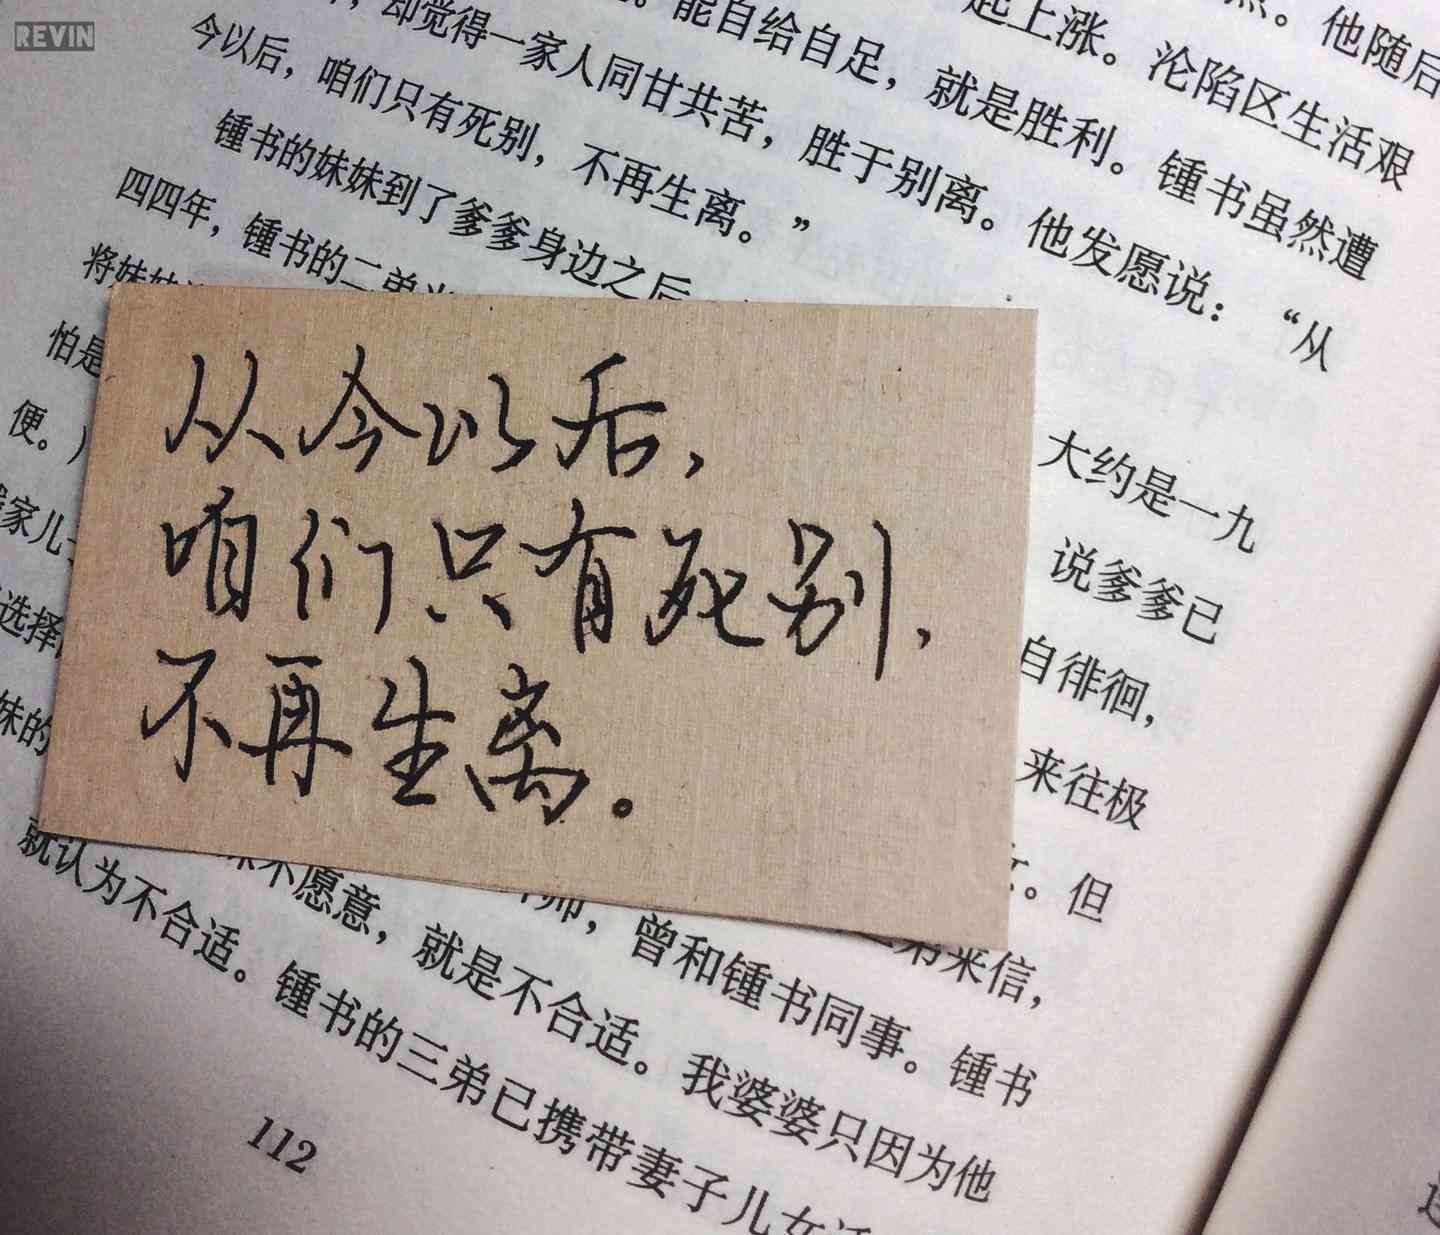 REVIN
他随后
起上涨。沦陷区生活艰
。能自给自足，就是胜利。锺书虽然遭
，却觉得一家人同甘共苦，胜于别离。他发愿说：“从
今以后，咱们只有死别，不再生离。”
锺书的妹妹到了爹爹身边之后 大约是一九
四四年，锺书的二弟 说爹爹已
将妹妹 自徘徊，
怕是 来往极
便。） 。但
家儿 弟来信，
选择 师，曾和锺书同事。锺书
妹的 不愿意，就是不合适。我婆婆只因为他
就认为不合适。锺书的三弟已携带妻子儿女
112
从今以后，
咱们只有死别，
不再生离。